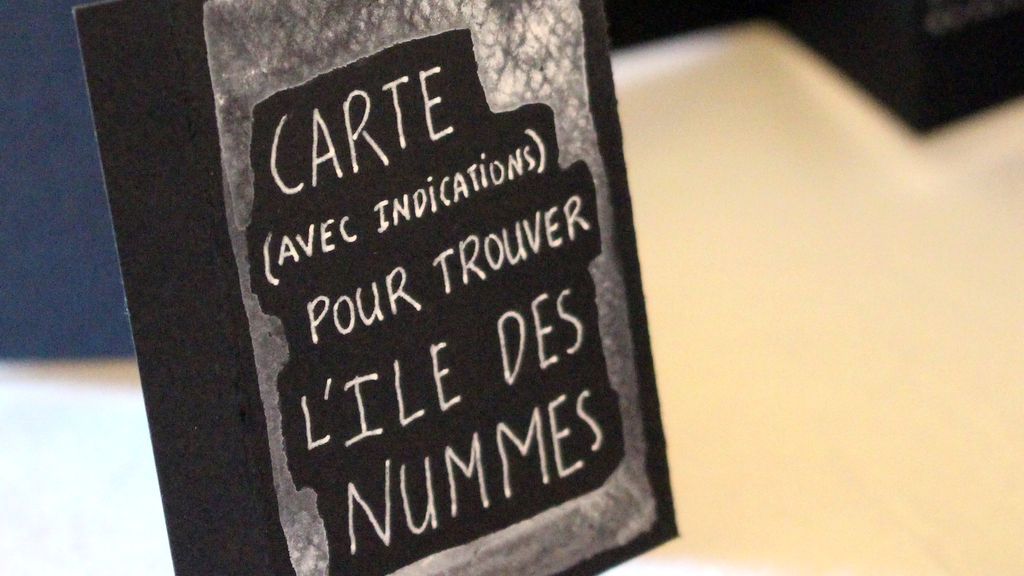 CARTE
(AVEC INDICATIONS)
POUR TROUVER
L'ILE DES
NUMMES